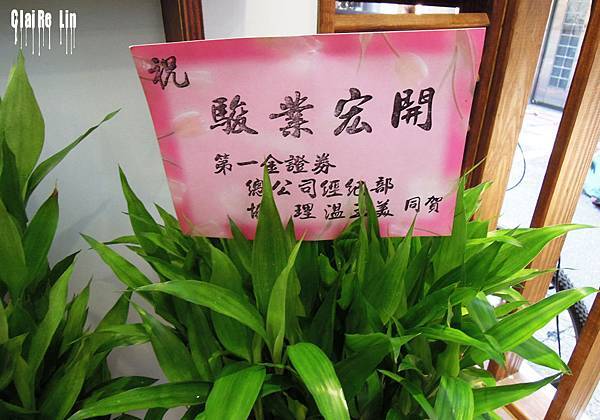 ClaiRe Lin
祝
駿業宏開
第一金證券
總公司經紀部
協理溫玉美同賀